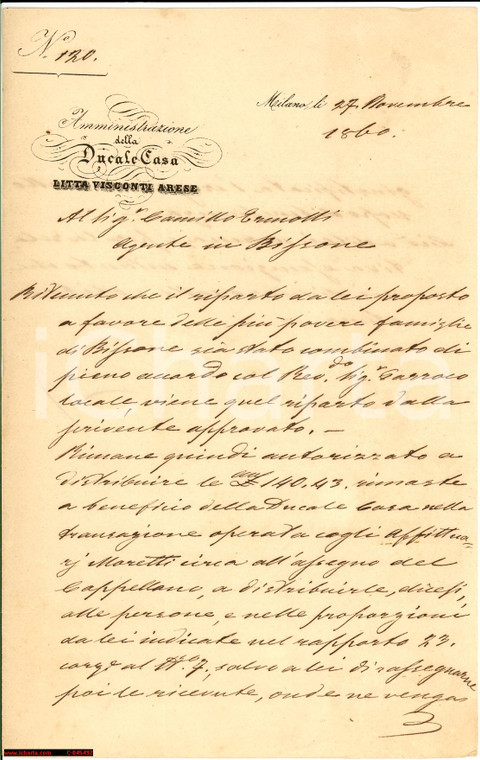 N.º 120.
Milano, li 27. Novembre
1860.
Amministrazione
della
Ducale Casa
LITTA VISCONTI ARESE
Al Sig.r Camillo Ermolli
Agente in Bissone
Ritenuto che il riparto da lei proposto
a favore delle più povere famiglie
di Bissone sia stato combinato di
pieno accordo col Rev.do Sig.r Parroco
locale, viene quel riparto dalla
scrivente approvato. —
Rimane quindi autorizzato a
distribuire le 140.43. rimaste
a beneficio della Ducale Casa nella
transazione operata cogli Affittua-
rj Moretti circa all'assegno del
Cappellano, a distribuirle, dicesi,
alle persone, e nelle proporzioni
da lei indicate nel rapporto 23.
corr.e al N.º 7, salvo a lei di rassegnarne
poi le ricevute, onde ne vengas
iCharta
www.icharta.com